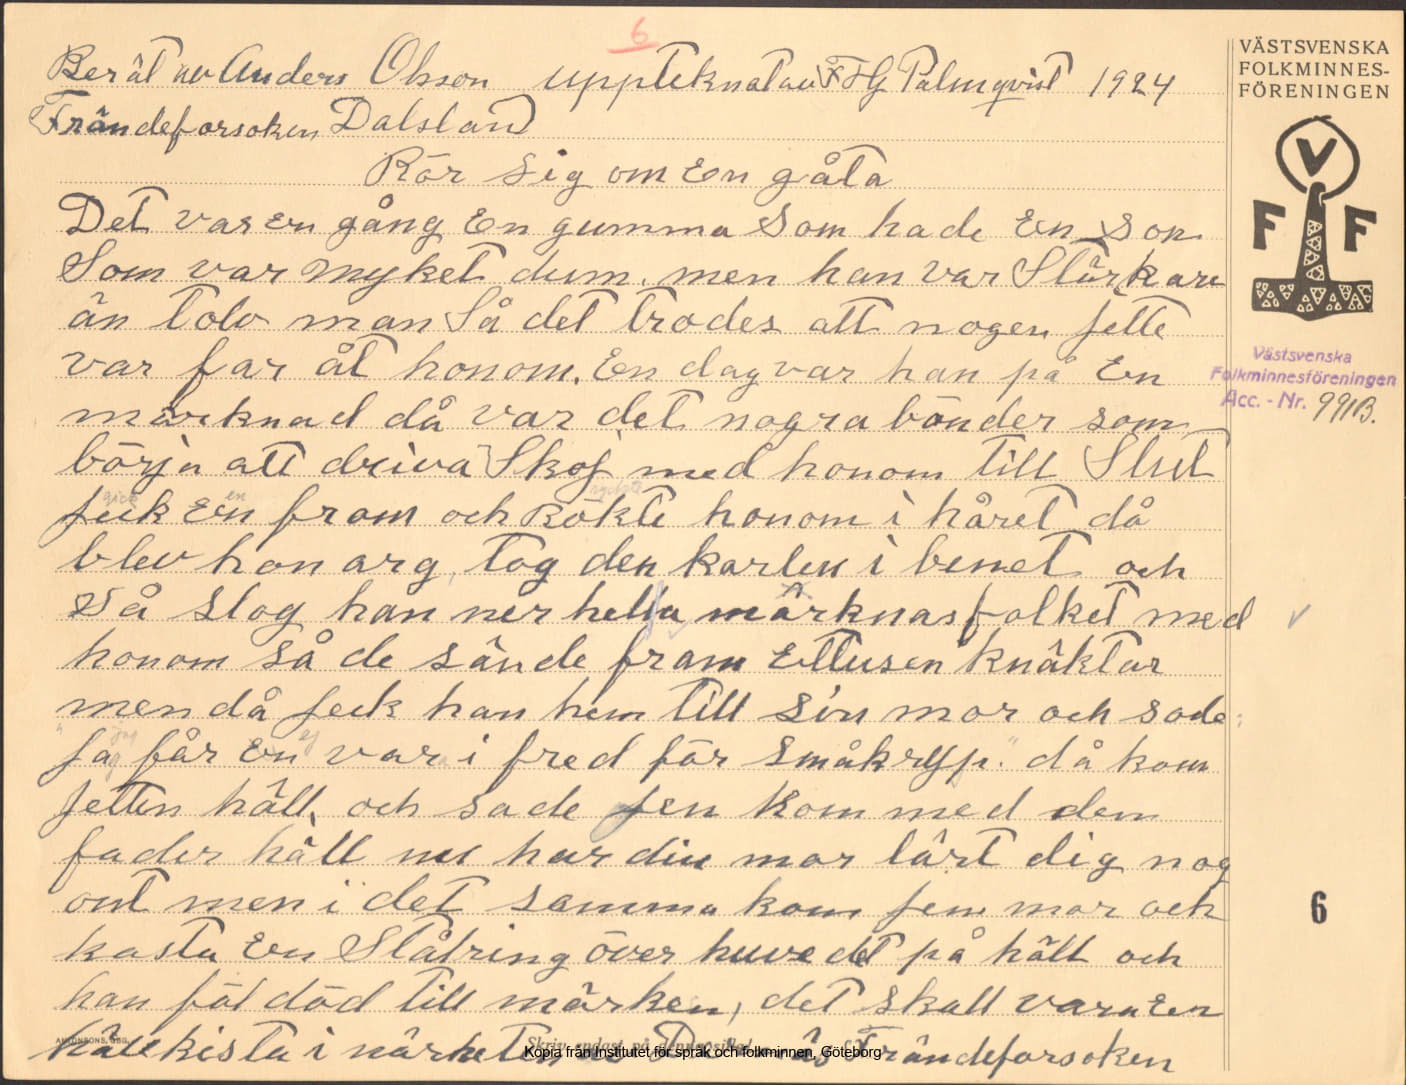 6
Berät av Anders Olsson uppteknat av F HG Palmqvist 1924
Frändeforsoken Dalsland
Rör sig om En gåta
Det var en gång En gumma som hade En son
som var myket dum. men han var Stärkare
än tolv man så det trodes att nogen jette
var far åt honom. En dag var han på En
marknad då var det nogra bönder som
börja att driva Skoj med honom till Slut
gick en ryckte
feck En fram och Rökte honom i håret då
blev han arg, tog den karlen i benet och
så slog han ner hella märknasfolket med
honom så de sände fram Ettusen knäktar
men då feck han hem till sin mor och sade:
"Jag får En var i fred för småkryp." då kom
Jetten häll, och sade jen kom med dem
fader häll nu har din mor lärt dig nog
ont men i det samma kom jens mor och
kasta En Stålring över huvedet på häll och
han föl död till marken, det skall vara En
hälekista i närheten Frändeforsoken
VÄSTSVENSKA
FOLKMINNES-
FÖRENINGEN
V
F F
Västsvenska
Folkminnesföreningen
Acc. - Nr. 991B.
6
Kopia från Institutet för språk och folkminnen, Göteborg